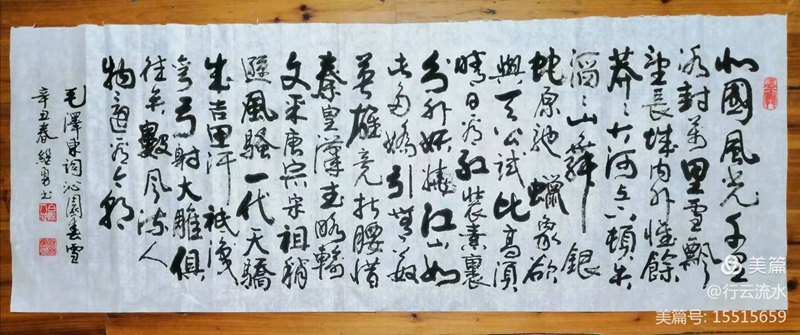 北國風光千里
冰封萬里雪飄
望長城内外惟餘
莽〻大河上下頓失
滔〻山舞銀
蛇原馳蠟象欲
與天公試比高須
晴日看紅裝素裹
分外妖嬈江山如
此多嬌引無數
英雄競折腰惜
秦皇漢武略輸
文采唐宗宋祖稍
遜風騷一代天驕
成吉思汗祇識
彎弓射大雕俱
往矣數風流人
物還看今朝
毛澤東詞沁園春雪
辛丑春繼勇書
美篇
@行云流水
美篇号: 15515659